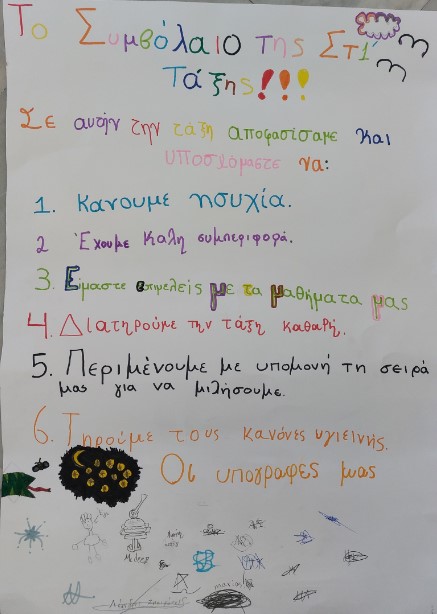 Το Συμβόλαιο της Στ1'
Τάξης!!!
Σε αυτήν την τάξη αποφασίσαμε και
υποσχόμαστε να:
1. Κανουμε ησυχία.
2 Έχουμε καλη συμπεριφορά.
3. Είμαστε επιμελείς με τα μαθήματα μας
4. Διατηρούμε την τάξη καθαρή.
5. Περιμένουμε με υπομονή τη σειρά
μας για να μιλήσουμε.
6. Τηρούμε τους κανόνες υγιεινής.
Οι υπογραφες μας